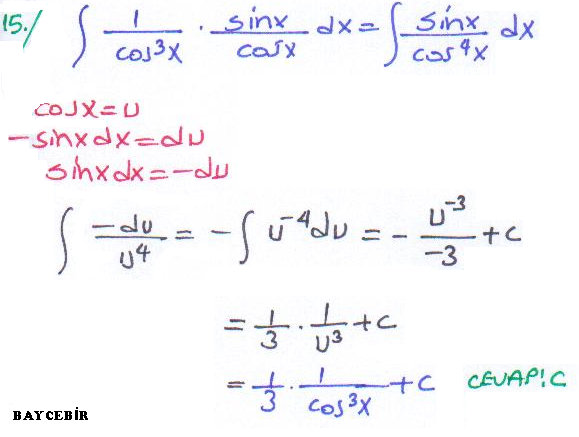 15./ ∫ 1/cos³x · sinx/cosx dx = ∫ sinx/cos⁴x dx
cosx=u
-sinxdx=du
sinxdx=-du
∫ -du/u⁴ = -∫ u⁻⁴du = - u⁻³/-3 +c
= 1/3 · 1/u³ +c
= 1/3 · 1/cos³x +c CEVAP:C
BAYCEBİR